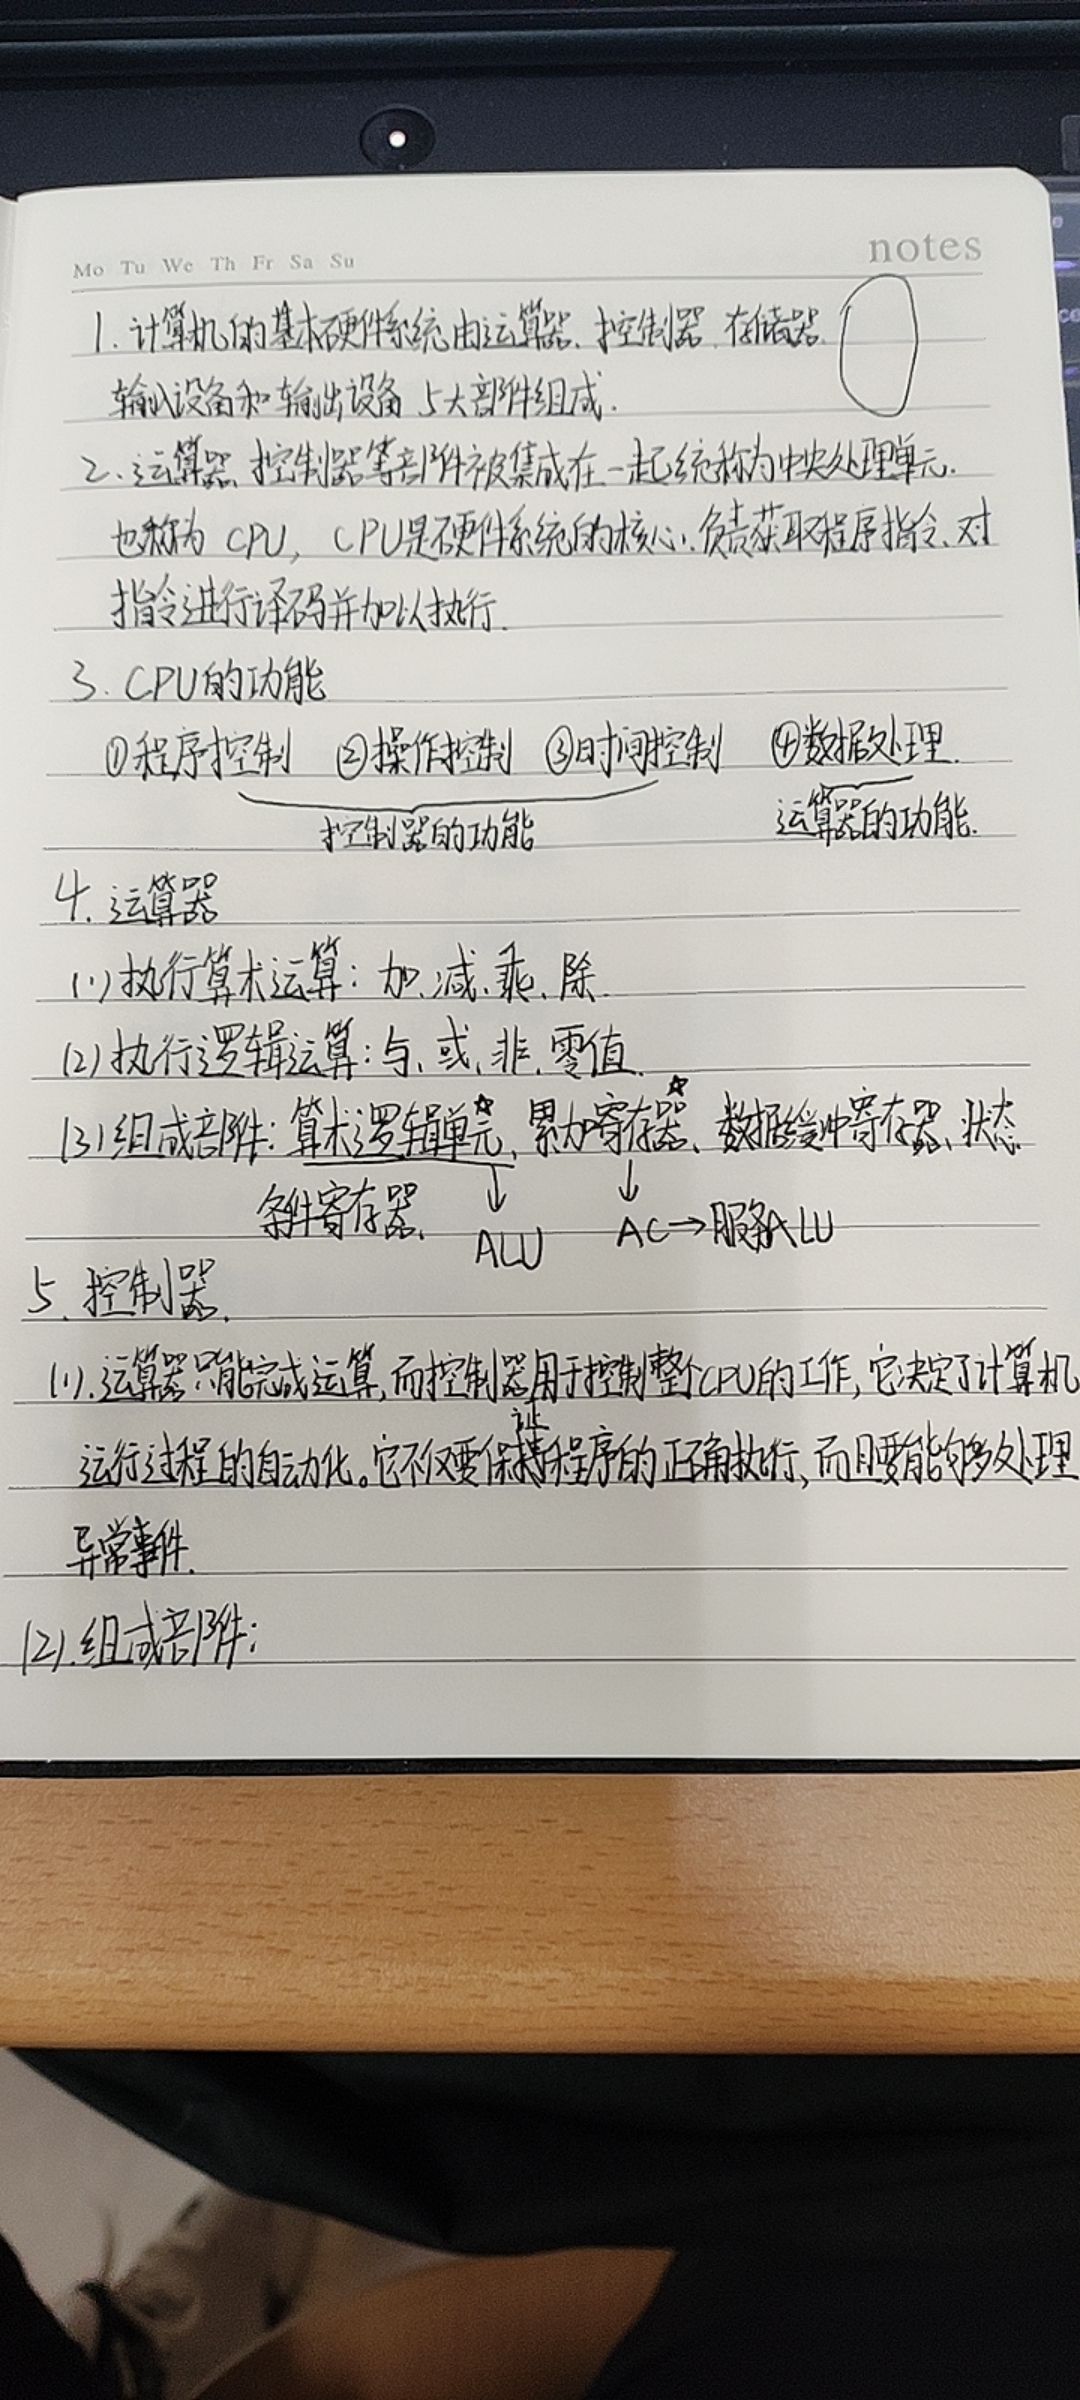 Mo Tu We Th Fr Sa Su
notes
1. 计算机的基本硬件系统由运算器、控制器、存储器
输入设备和输出设备 5大部件组成.
2. 运算器、控制器等部件被集成在一起统称为中央处理单元.
也称为 CPU, CPU是硬件系统的核心.负责获取程序指令、对
指令进行译码并加以执行.
3. CPU的功能
①程序控制 ②操作控制 ③时间控制 ④数据处理.
控制器的功能 运算器的功能.
4. 运算器
(1) 执行算术运算: 加、减、乘、除.
(2) 执行逻辑运算: 与、或、非、零值.
(3) 组成部件: 算术逻辑单元☆、累加寄存器☆、数据缓冲寄存器、状态
条件寄存器. ↓ ALU ↓ AC→服务ALU
5. 控制器.
(1). 运算器只能完成运算,而控制器用于控制整个CPU的工作,它决定了计算机
运行过程的自动化。它不仅要保证程序的正确执行,而且要能够处理
异常事件.
(2). 组成部件: